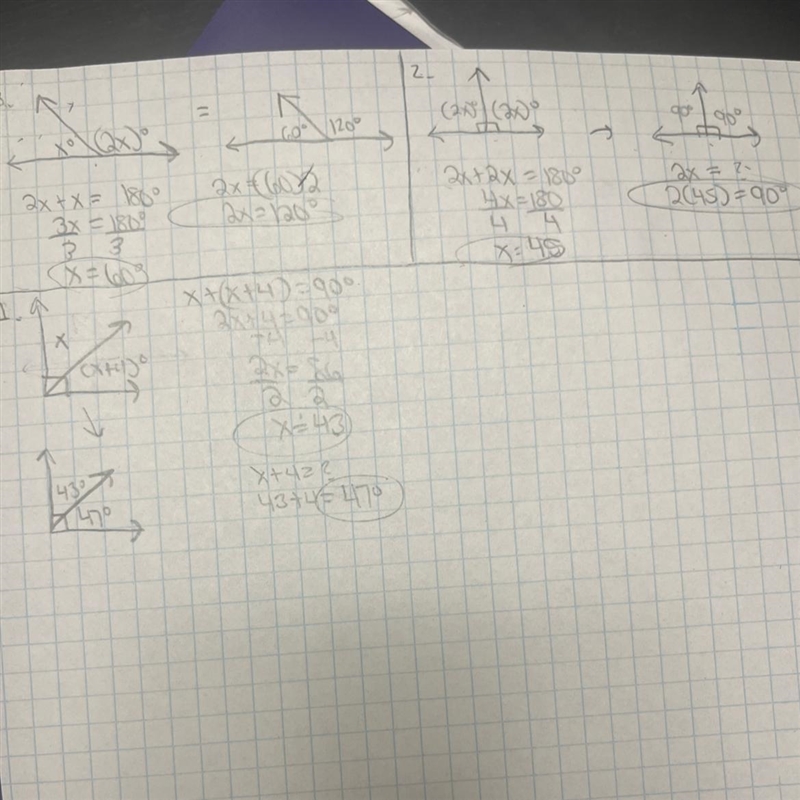 3.
x° (2x)°
=
60° 120°
2x + x = 180°
3x = 180°
3 3
x = 60°
2x = (60)2
2x = 120°
2-
(2x)° (2x)°
→ 90° 90°
2x + 2x = 180°
4x = 180
4 4
x = 45
2x = ?
2(45) = 90°
1-
x
(x+4)°
x + (x + 4) = 90°
2x + 4 = 90°
-4 -4
2x = 86
2 2
x = 43
43°
47°
x + 4 = ?
43 + 4 = 47°